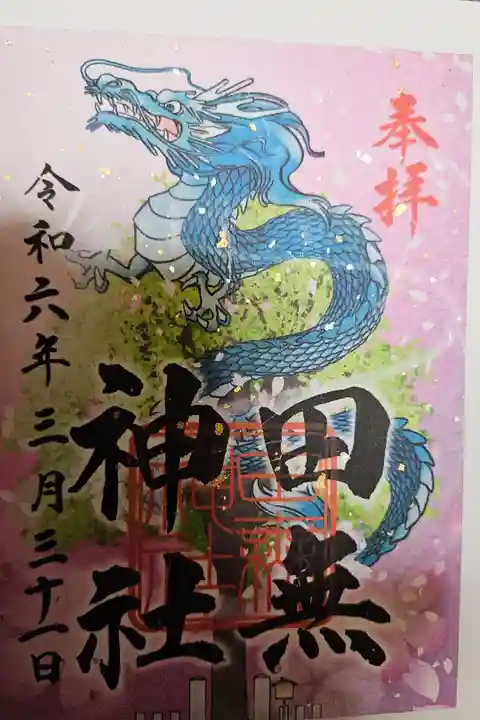 奉拝
田無
神社
令和六年三月三十一日